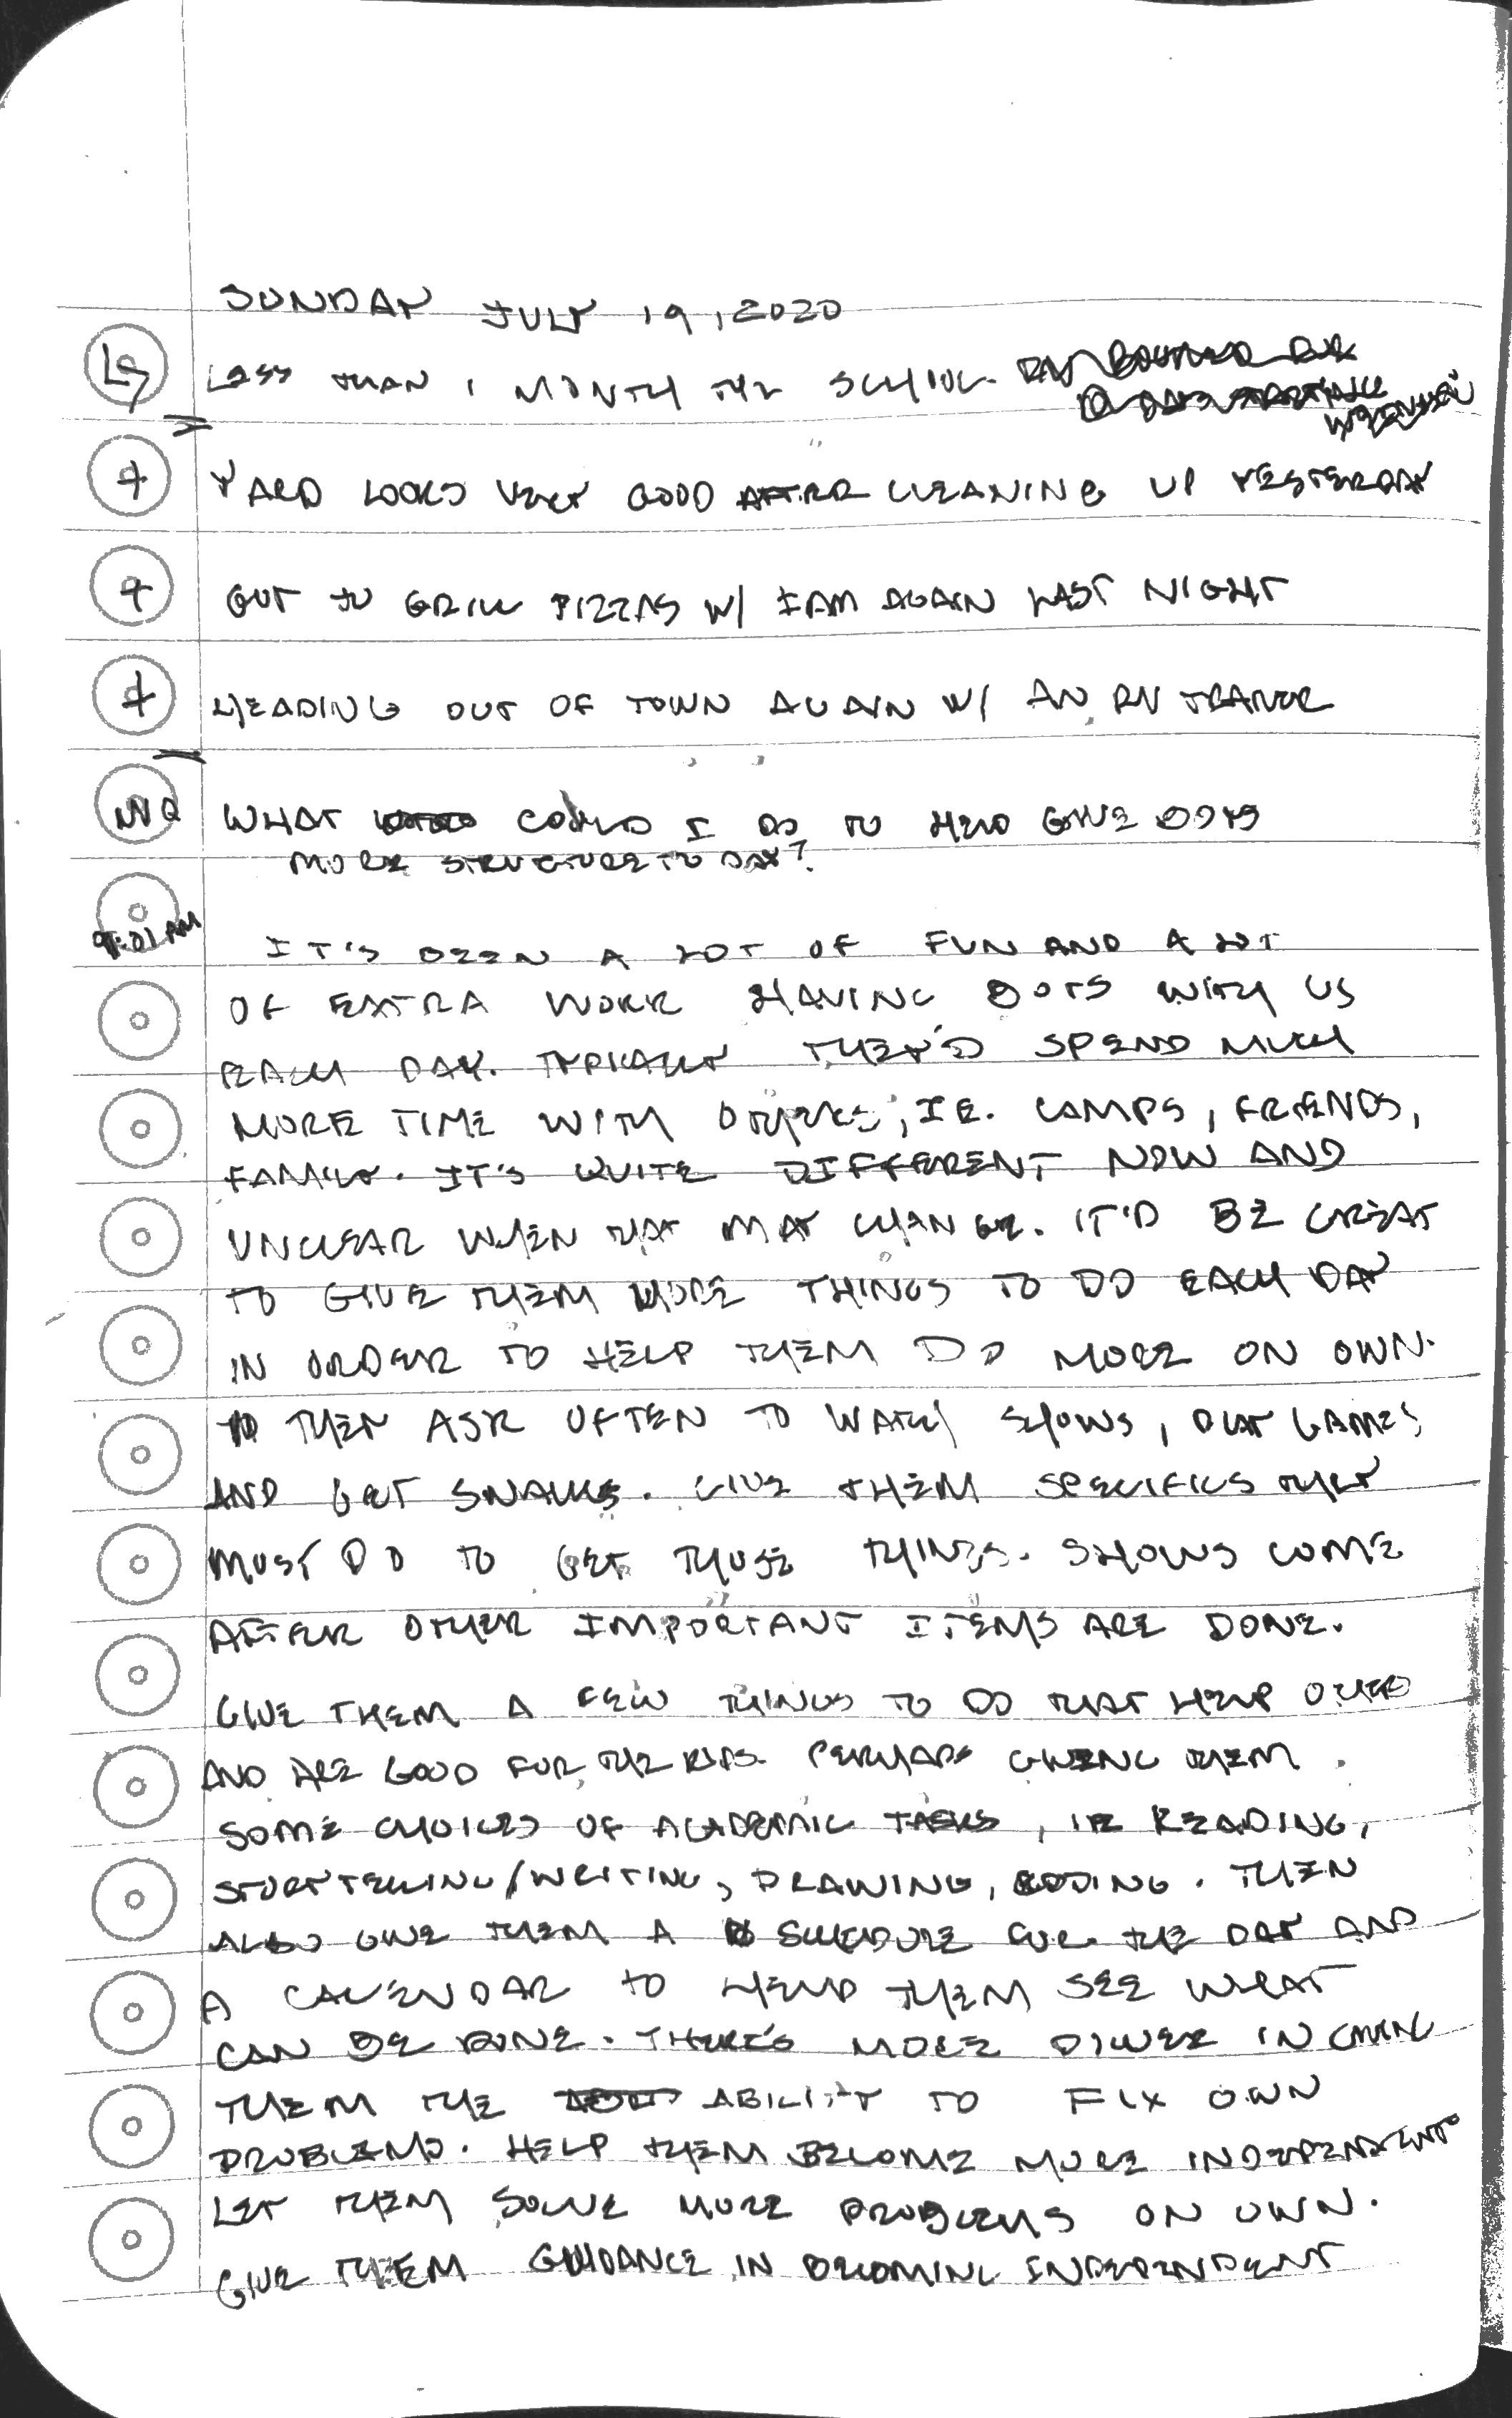 SUNDAY JULY 19, 2020
LS LESS THAN 1 MONTH TIL SCHOOL.
+ YARD LOOKS VERY GOOD AFTER CLEANING UP YESTERDAY
+ GOT TO GRILL PIZZAS W/ FAM AGAIN LAST NIGHT
+ HEADING OUT OF TOWN AGAIN W/ AN RV
WQ WHAT COULD I DO TO HELP GIVE BOYS
MORE STRUCTURE TO DAY?
9:01 AM IT'S BEEN A LOT OF FUN AND A LOT
OF EXTRA WORK HAVING BOYS WITH US
EACH DAY. TYPICALLY THEY'D SPEND MUCH
MORE TIME WITH OTHERS, IE. CAMPS, FRIENDS,
FAMILY. IT'S QUITE DIFFERENT NOW AND
UNCLEAR WHEN THAT MAY CHANGE. IT'D BE GREAT
TO GIVE THEM MORE THINGS TO DO EACH DAY
IN ORDER TO HELP THEM DO MORE ON OWN.
THEY ASK OFTEN TO WATCH SHOWS, PLAY GAMES
AND GET SNACKS. GIVE THEM SPECIFICS THEY
MUST DO TO GET THOSE THINGS. SHOWS COME
AFTER OTHER IMPORTANT ITEMS ARE DONE.
GIVE THEM A FEW THINGS TO DO THAT HELP
AND ARE GOOD FOR THE KIDS. PERHAPS GIVING THEM
SOME CHOICES OF ACADEMIC TASKS, IE READING,
STORYTELLING/WRITING, DRAWING, CODING. THEN
ALSO GIVE THEM A SCHEDULE FOR THE DAY AND
A CALENDAR TO HELP THEM SEE WHAT
CAN BE DONE. THERE'S MORE POWER IN GIVING
THEM THE ABILITY TO FIX OWN
PROBLEMS. HELP THEM BECOME MORE INDEPENDENT.
LET THEM SOLVE MORE PROBLEMS ON OWN.
GIVE THEM GUIDANCE IN BECOMING INDEPENDENT